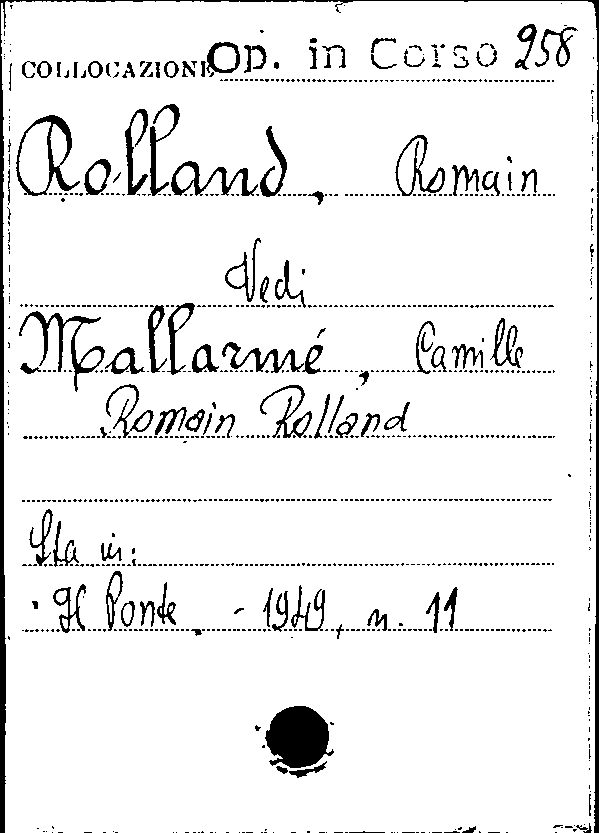 COLLOCAZIONE Op. in Corso 258
Rolland, Romain
Vedi
Mallarmé, Camille
Romain Rolland
Sta in:
Il Ponte. - 1949, n. 11